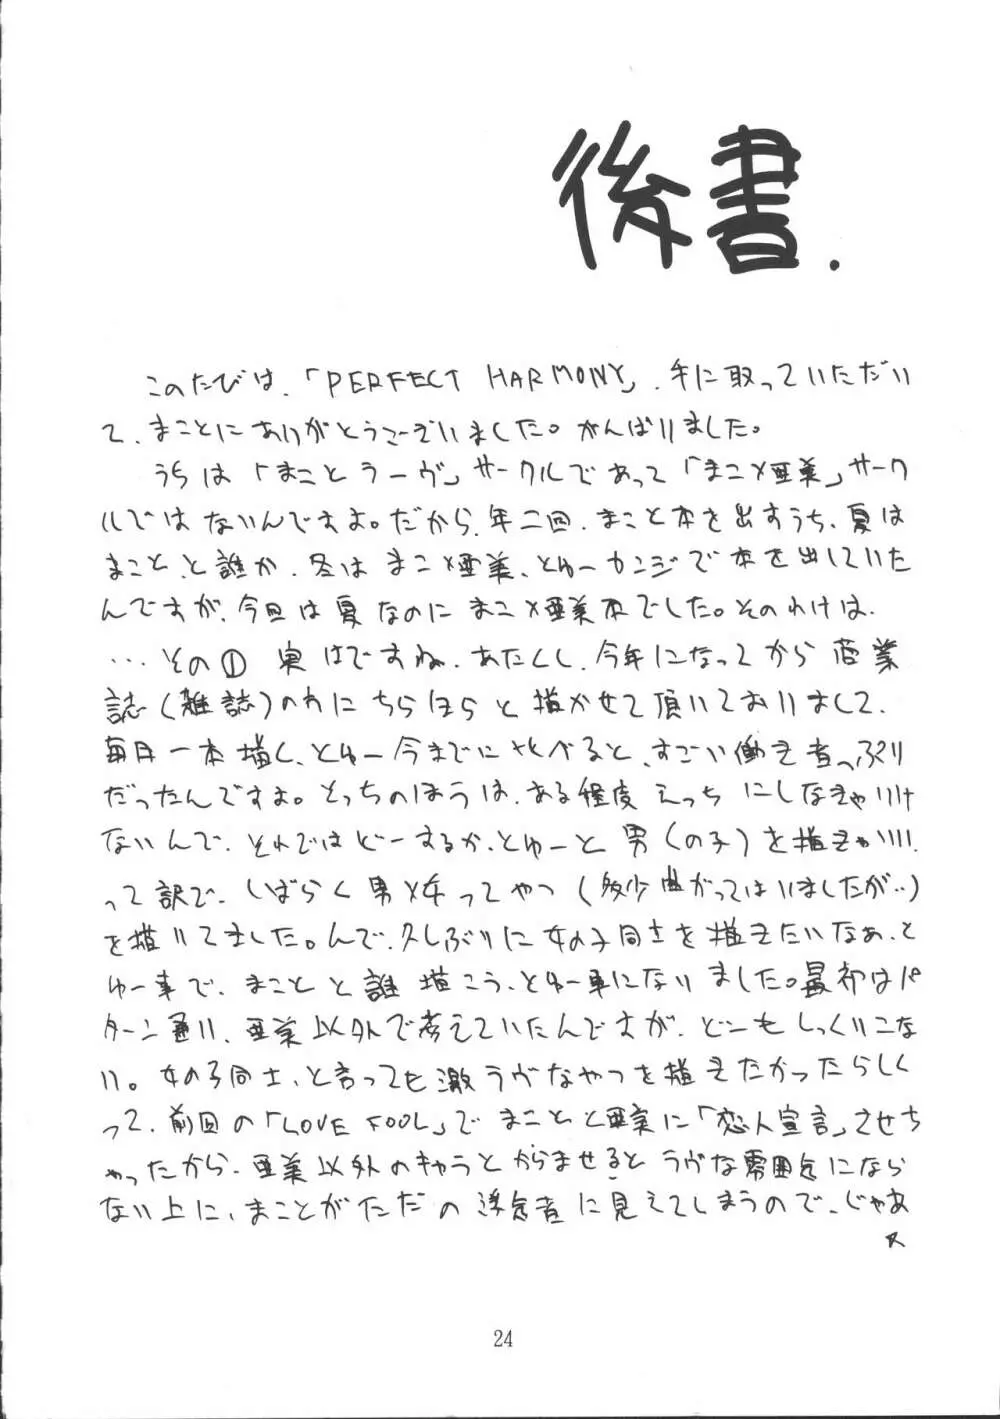 後書.
このたびは、「PERFECT HARMONY」、手に取っていただい
て、まことにありがとうございました。がんばりました。
うちは「まことラーヴ」サークルであって「まこ×亜美」サーク
ルではないんですよ。だから、年二回、まこと本を出すうち、夏は
まこと、と誰か、冬はまこ×亜美、とゆーカンジで本を出していた
んですが、今回は夏なのにまこ×亜美本でした。そのわけは、
…その① 実はですね、あたくし、今年になってから商業
誌(雑誌)のわにちらほらと描かせて頂いておりまして、
毎月一本描く、とゆー今までに比べると、すごい働き者っぷり
だったんですよ。とっちのほうは、ある程度えっちにしなきゃいけ
ないんで、それではどーするか、とゆーと男(の子)を描きゃいい、
って訳で、しばらく男×女ってやつ(多少曲がってはいましたが‥)
を描いてました。んで、久しぶりに女の子同士を描きたいなぁ、と
ゆー事で、まことと誰描こう、とゆー事になりました。最初はパ
ターン通り、亜美以外で考えていたんですが、どーもしっくりこな
い。女の子同士、と言っても激ラヴなやつを描きたかったらしく
って、前回の「LOVE FOOL」でまことと亜美に「恋人宣言」させち
ゃったから、亜美以外のキャラとからませるとラヴな雰囲気になら
ない上に、まことがただの浮気者に見えてしまうので、じゃあ
24